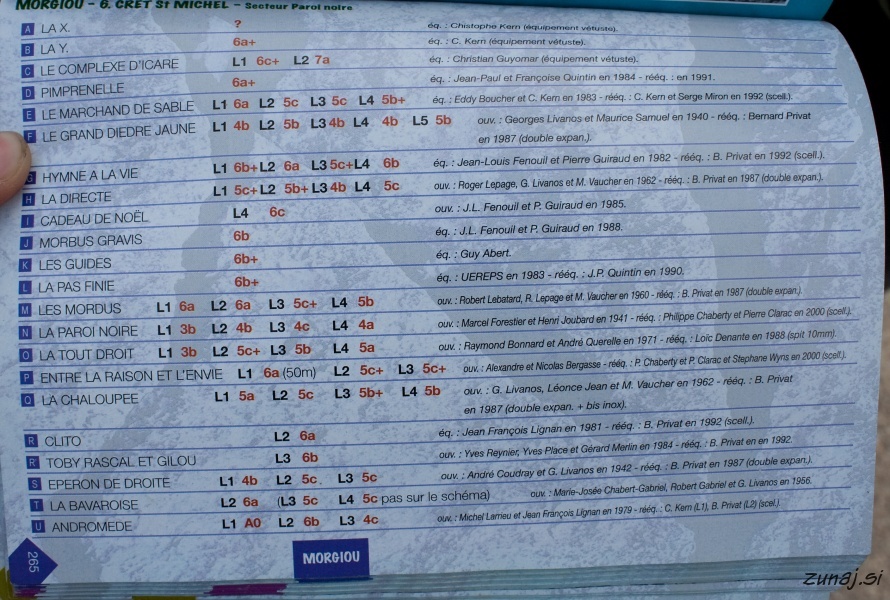 MORGIOU - 6. CRET St MICHEL - Secteur Paroi noire
A LA X. ? éq. : Chistophe Kern (équipement vétuste).
B LA Y. 6a+ éq. : C. Kern (équipement vétuste).
C LE COMPLEXE D'ICARE L1 6c+ L2 7a éq. : Christian Guyomar (équipement vétuste).
D PIMPRENELLE 6a+ éq. : Jean-Paul et Françoise Quintin en 1984 - rééq. : en 1991.
E LE MARCHAND DE SABLE L1 6a L2 5c L3 5c L4 5b+ éq. : Eddy Boucher et C. Kern en 1983 - rééq. : C. Kern et Serge Miron en 1992 (scell.).
F LE GRAND DIEDRE JAUNE L1 4b L2 5b L3 4b L4 4b L5 5b ouv. : Georges Livanos et Maurice Samuel en 1940 - rééq. : Bernard Privat
en 1987 (double expan.).
G HYMNE A LA VIE L1 6b+ L2 6a L3 5c+ L4 6b éq. : Jean-Louis Fenouil et Pierre Guiraud en 1982 - rééq. : B. Privat en 1992 (scell.).
H LA DIRECTE L1 5c+ L2 5b+ L3 4b L4 5c ouv. : Roger Lepage, G. Livanos et M. Vaucher en 1962 - rééq. : B. Privat en 1987 (double expan.).
I CADEAU DE NOËL L4 6c ouv. : J.L. Fenouil et P. Guiraud en 1985.
J MORBUS GRAVIS 6b éq. : J.L. Fenouil et P. Guiraud en 1988.
K LES GUIDES 6b+ éq. : Guy Abert.
L LA PAS FINIE 6b+ éq. : UEREPS en 1983 - rééq. : J.P. Quintin en 1990.
M LES MORDUS L1 6a L2 6a L3 5c+ L4 5b ouv. : Robert Lebatard, R. Lepage et M. Vaucher en 1960 - rééq. : B. Privat en 1987 (double expan.).
N LA PAROI NOIRE L1 3b L2 4b L3 4c L4 4a ouv. : Marcel Forestier et Henri Joubard en 1941 - rééq. : Philippe Chaberty et Pierre Clarac en 2000 (scell.).
O LA TOUT DROIT L1 3b L2 5c+ L3 5b L4 5a ouv. : Raymond Bonnard et André Querelle en 1971 - rééq. : Loïc Denante en 1988 (spit 10mm).
P ENTRE LA RAISON ET L'ENVIE L1 6a (50m) L2 5c+ L3 5c+ ouv. : Alexandre et Nicolas Bergasse - rééq. : P. Chaberty et P. Clarac et Stephane Wyns en 2000 (scell.).
Q LA CHALOUPEE L1 5a L2 5c L3 5b+ L4 5b ouv. : G. Livanos, Léonce Jean et M. Vaucher en 1962 - rééq. : B. Privat
en 1987 (double expan. + bis inox).
R CLITO L2 6a éq. : Jean François Lignan en 1981 - rééq. : B. Privat en 1992 (scell.).
R' TOBY RASCAL ET GILOU L3 6b ouv. : Yves Reynier, Yves Place et Gérard Merlin en 1984 - rééq. : B. Privat en en 1992.
S EPERON DE DROITE L1 4b L2 5c L3 5c ouv. : André Coudray et G. Livanos en 1942 - rééq. : B. Privat en 1987 (double expan.).
T LA BAVAROISE L2 6a (L3 5c L4 5c pas sur le schéma) ouv. : Marie-Josée Chabert-Gabriel, Robert Gabriel et G. Livanos en 1956.
U ANDROMEDE L1 A0 L2 6b L3 4c ouv. : Michel Larrieu et Jean François Lignan en 1979 - rééq. : C. Kern (L1), B. Privat (L2) (scel.).
265
MORGIOU
zunaj.si